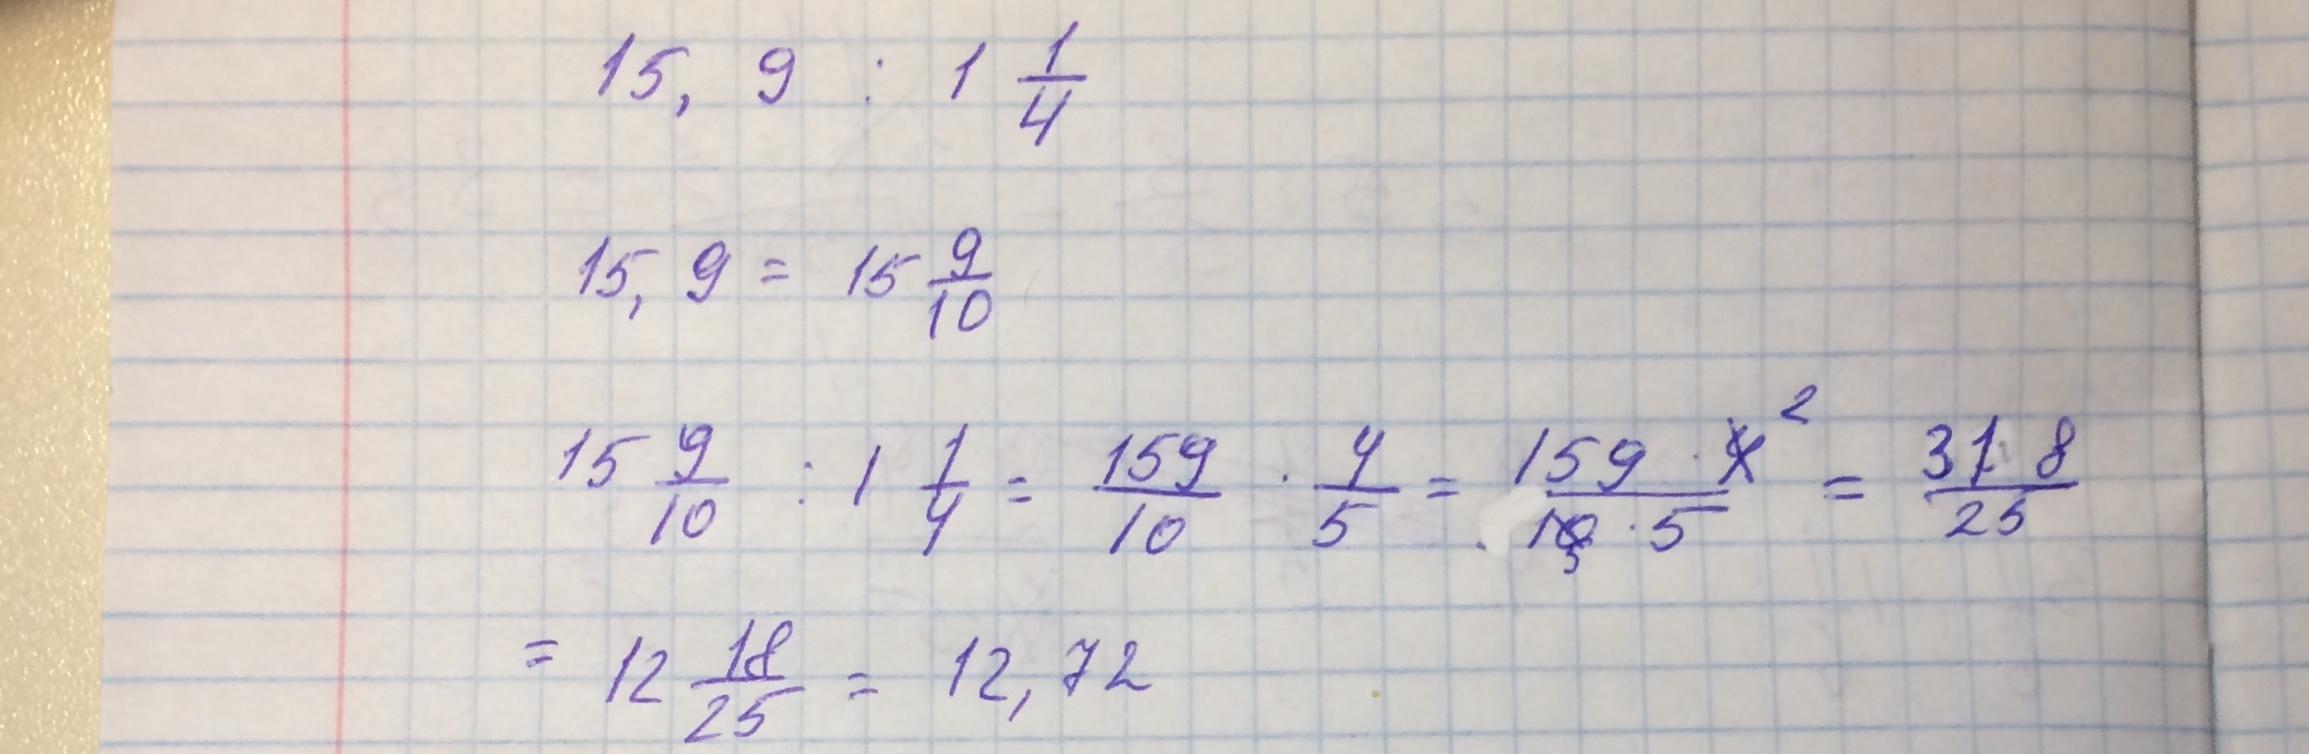 15,9 : 1 1/4
15,9 = 15 9/10
15 9/10 : 1 1/4 = 159/10 · 4/5 = 159 · 4 2/10 5 · 5 = 318/25
= 12 18/25 = 12,72